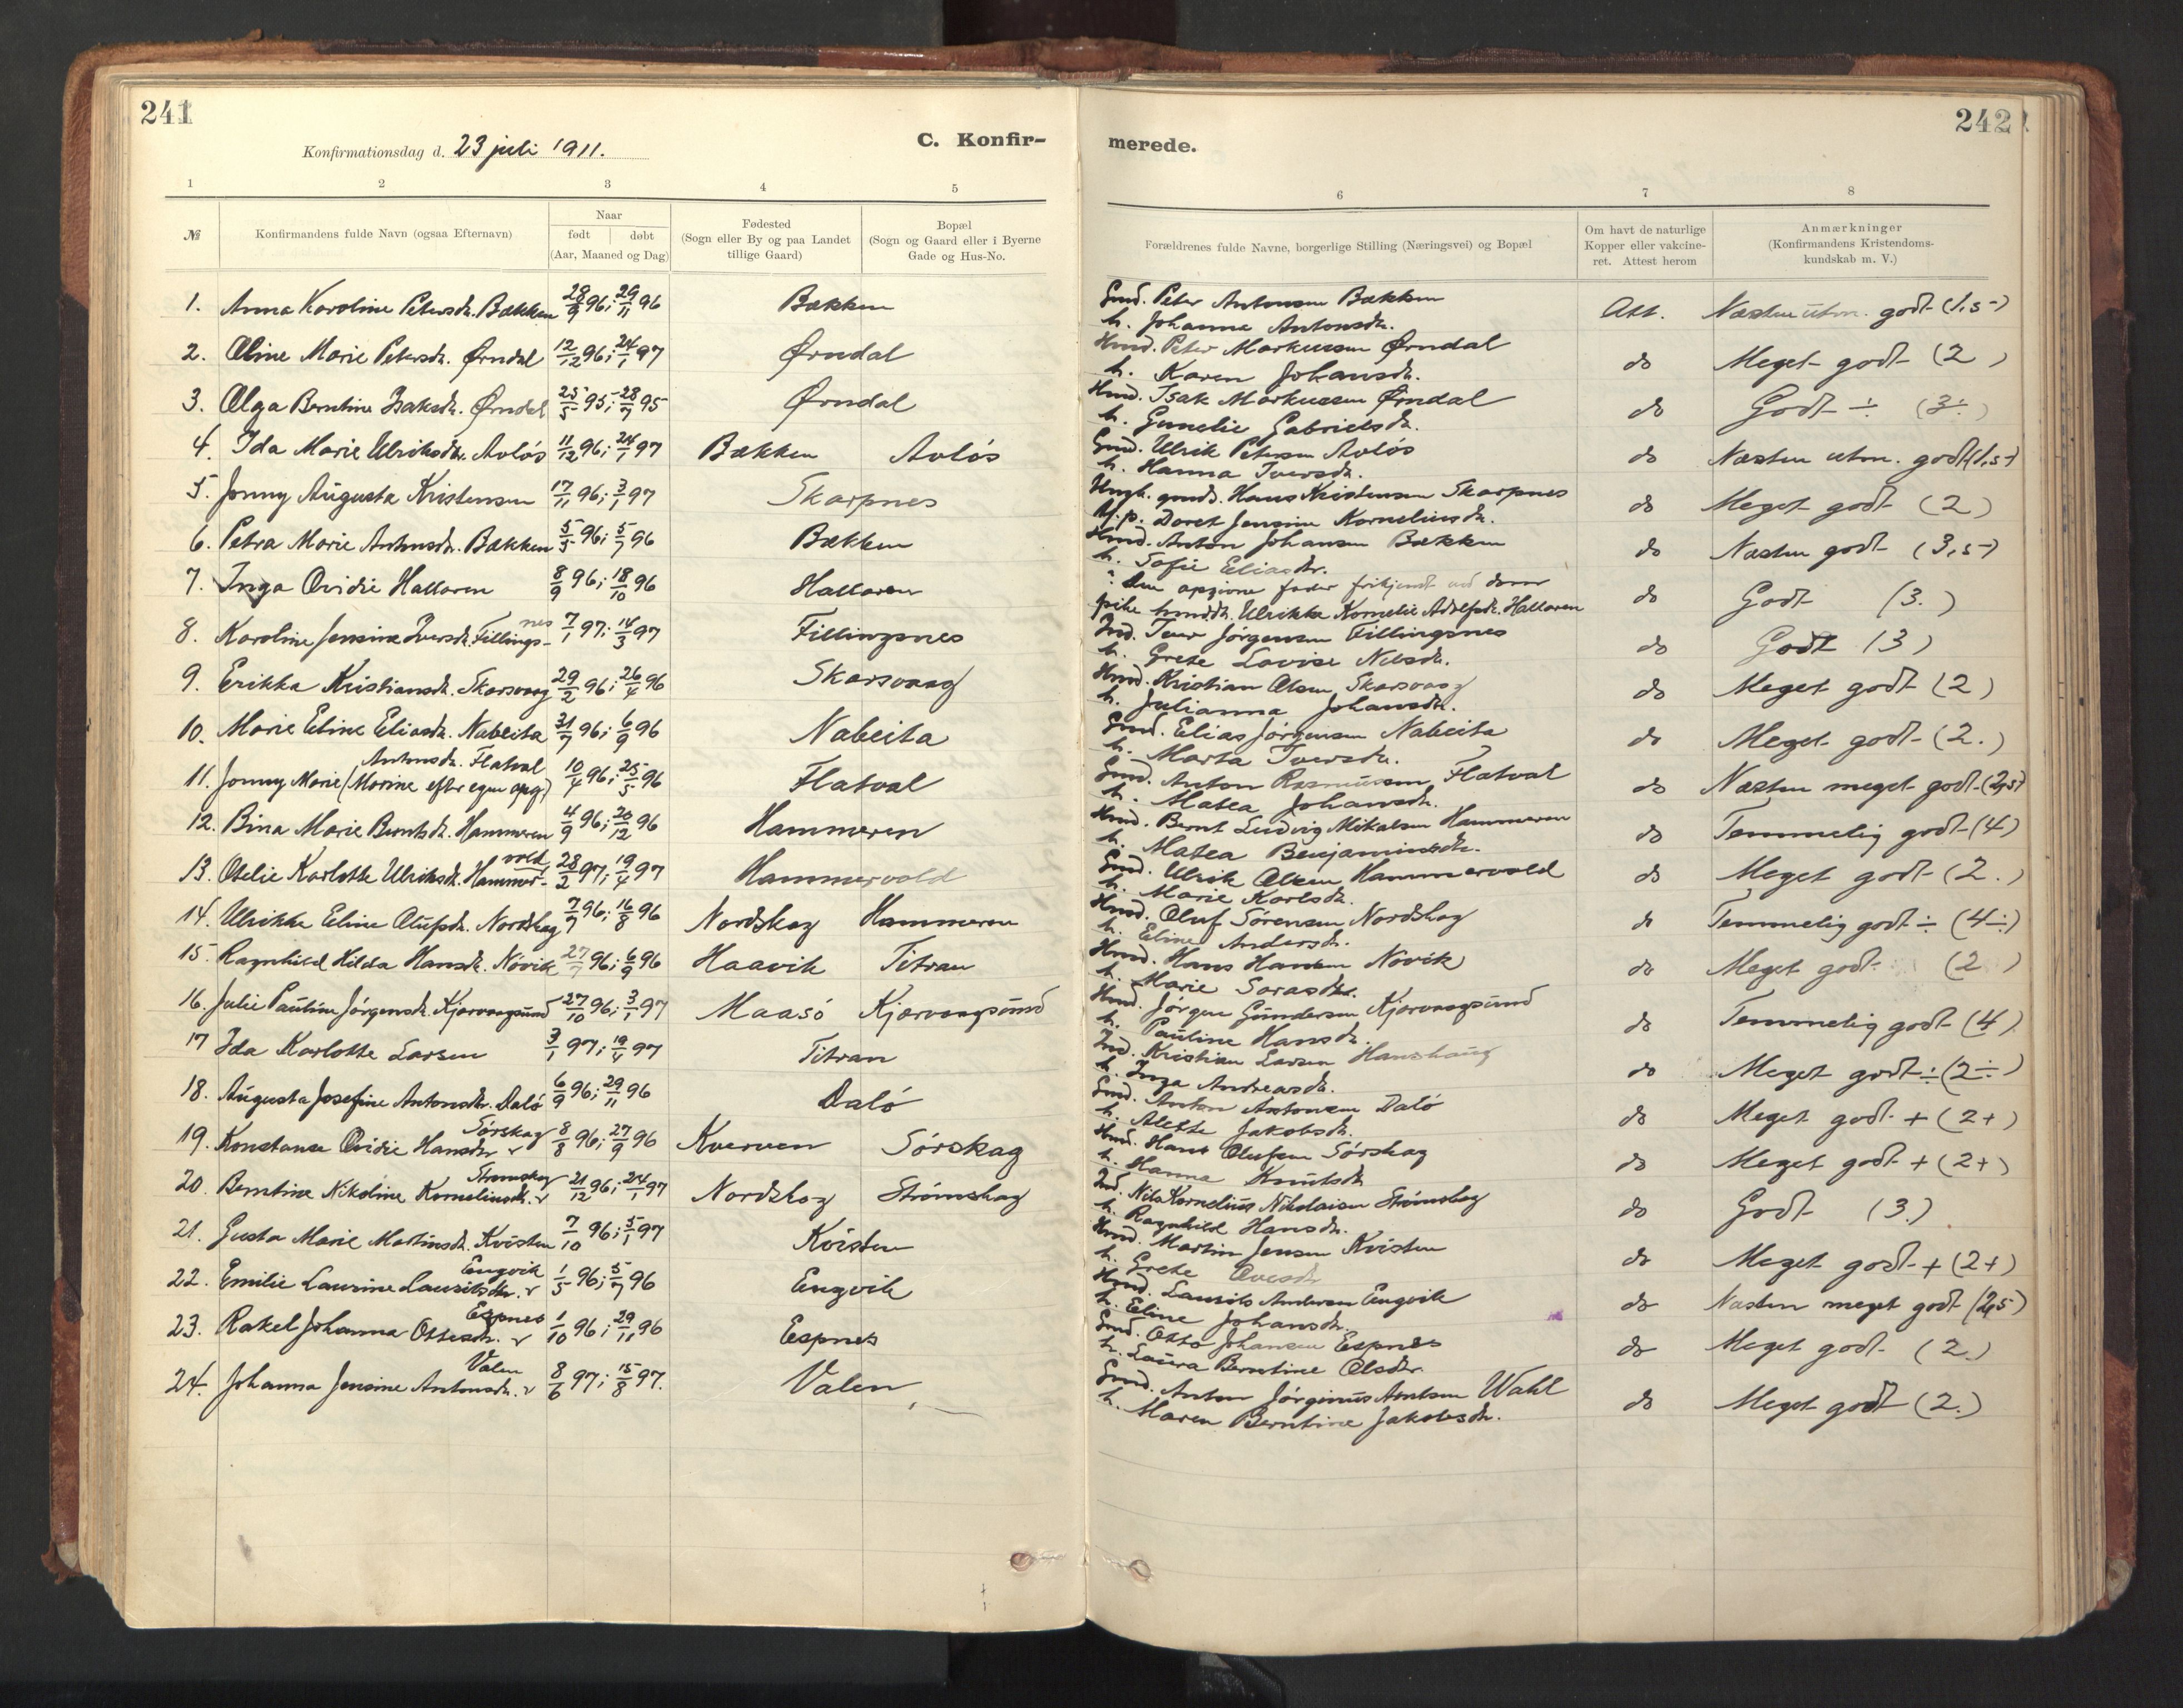 241
Konfirmationsdag d. 23 juli 1911.
C. Konfir-
1 2 3 4 5
№ Konfirmandens fulde Navn (ogsaa Efternavn) Naar født døbt (Aar, Maaned og Dag) Fødested (Sogn eller By og paa Landet tillige Gaard) Bopæl (Sogn og Gaard eller i Byerne Gade og Hus-No.
1. Anna Karoline Petersdr. Bækken 28/9 96; 29/11 96 Bækken
2. Oline Marie Petersdr. Ørndal 12/12 96; 24/1 97 Ørndal
3. Olga Berntine Isaksdr. Ørndal 25/5 95; 28/7 95 Ørndal
4. Ida Marie Ulriksdr. Avløs 11/12 96; 24/1 97 Bækken Avløs
5. Jonny Augusta Kristensen 17/11 96; 3/1 97 Skarpnes
6. Petra Marie Antonsdr. Bækken 5/5 96; 5/7 96 Bækken
7. Inga Ovidie Hallaren 8/9 96; 18/10 96 Hallaren
8. Karoline Jensine Iversdr. Fillings-nes 7/1 97; 14/3 97 Fillingsnes
9. Erikka Kristiansdr. Skarsvaag 29/2 96; 26/4 96 Skarsvaag
10. Marie Eline Eliasdr. Nabeita 31/7 96; 6/9 96 Nabeita
Antonsdr. Flatval
11. Jonny Marie (Marine efter egen opg.) 10/4 96; 25/5 96 Flatval
12. Bina Marie Berntsdr. Hammeren 4/9 96; 20/12 96 Hammeren
13. Otelie Karlotte Ulriksdr. Hammer-vold 28/2 97; 19/4 97 Hammervold
14. Ulrikke Eline Olufsdr. Nordskag 7/7 96; 16/8 96 Nordskag Hammeren
15. Ragnhild Hilda Hansdr. Nøvik 27/7 96; 6/9 96 Haavik Titran
16. Julie Pauline Jørgensdr. Kjørvaagsund 27/10 96; 3/1 97 Maasø Kjørvaagsund
17 Ida Karlotte Larsen 3/1 97; 19/4 97 Titran
18. Augusta Josefine Antonsdr. Dalø 6/9 96; 29/11 96 Dalø
Sørskag
19. Konstanse Ovidie Hansdr 8/8 96; 27/9 96 Kverven Sørskag
Strømskag
20. Berntine Nikoline Korneliusdr. 21/12 96; 24/1 97 Nordskag Strømskag
21. Gusta Marie Martinsdr. Kvisten 7/10 96; 5/1 97 Kvisten
Engvik
22. Emilie Laurine Lauritsdr. 1/5 96; 5/7 96 Engvik
Espnes
23. Rakel Johanna Ottesdr. 1/10 96; 29/11 96 Espnes
Valen
24. Johanna Jensine Antonsdr. 8/6 97; 15/8 97. Valen
242
merede.
6 7 8
Forældrenes fulde Navne, borgerlige Stilling (Næringsvei) og Bopæl Om havt de naturlige Kopper eller vakcine- ret. Attest herom Anmærkninger (Konfirmandens Kristendoms- kundskab m. V.)
Gmd. Peter Antonsen Bækken
h. Johanna Antonsdr. Att. Næsten utm. godt (1,5-)
Hmd. Peter Markussen Ørndal
h. Karen Johansdr. do Meget godt (2)
Hmd. Isak Markussen Ørndal
h. Gunelie Gabrielsdr. do Godt ÷ (3÷)
Gmd. Ulrik Petersen Avløs
h. Hanna Iversdr. do Næsten utm. godt (1,5-)
Ungk. gmds. Hans Kristensen Skarpnes
U.p. Doret Jensine Kornelinsdr. do Meget godt (2)
Hmd. Anton Johansen Bækken
h. Sofie Eliasdr. do Næsten godt (3,5-)
Den opgivne fader frikjendt ved dom
pike hmddr. Ulrikke Kornelie Adolfsdr. Hallaren do Godt (3.)
Ind. Iver Jørgensen Fillingsnes
h. Grete Lovise Nilsdr. do Godt (3)
Hmd. Kristian Olsen Skarsvaag
h. Julianna Johansdr. do Meget godt (2)
Gmd. Elias Jørgensen Nabeita
h. Marta Iversdr. do Meget godt (2.)
Gmd. Anton Rasmussen Flatval
h. Matea Johansdr. do Næsten meget godt (2,5)
Hmd. Bernt Ludvig Mikalsen Hammeren
h. Matea Benjaminsdr. do Temmelig godt (4)
Gmd. Ulrik Olsen Hammervold
h. Marie Karlsdr. do Meget godt (2.)
Hmd. Oluf Sørensen Nordskag
h. Eline Andersdr. do Temmelig godt ÷ (4÷)
Hmd. Hans Hansen Novik
h. Marie Sarasdr. do Meget godt (2)
Hmd. Jørgen Gundersen Kjørvaagsund
h. Pauline Hansdr. do Temmelig godt (4)
Ind. Kristian Larsen Hanshaug
h. Inga Andreasdr. do Meget godt ÷ (2÷)
Gmd. Anton Antonsen Dalø
h. Alette Jakobsdr. do Meget godt + (2+)
Hmd. Hans Olufsen Sørskag
h. Hanna Knutsdr do Meget godt + (2+)
Ind. Nils Kornelius Nikolaisen Strømskag
h. Ragnhild Hansdr. do Godt (3.)
Hmd. Martin Jensen Kvisten
h. Grete Ovesdr do Meget godt + (2+)
Hmd. Laurits Andersen Engvik
h. Eline Johansdr. do Næsten meget godt (2,5)
Gmd. Otto Johansen Espnes
h. Laura Berntine Olsdr. do Meget godt (2.)
Gmd. Anton Jørginus Arntsen Wahl
h. Maren Berntine Jakobsdr. do Meget godt (2.)